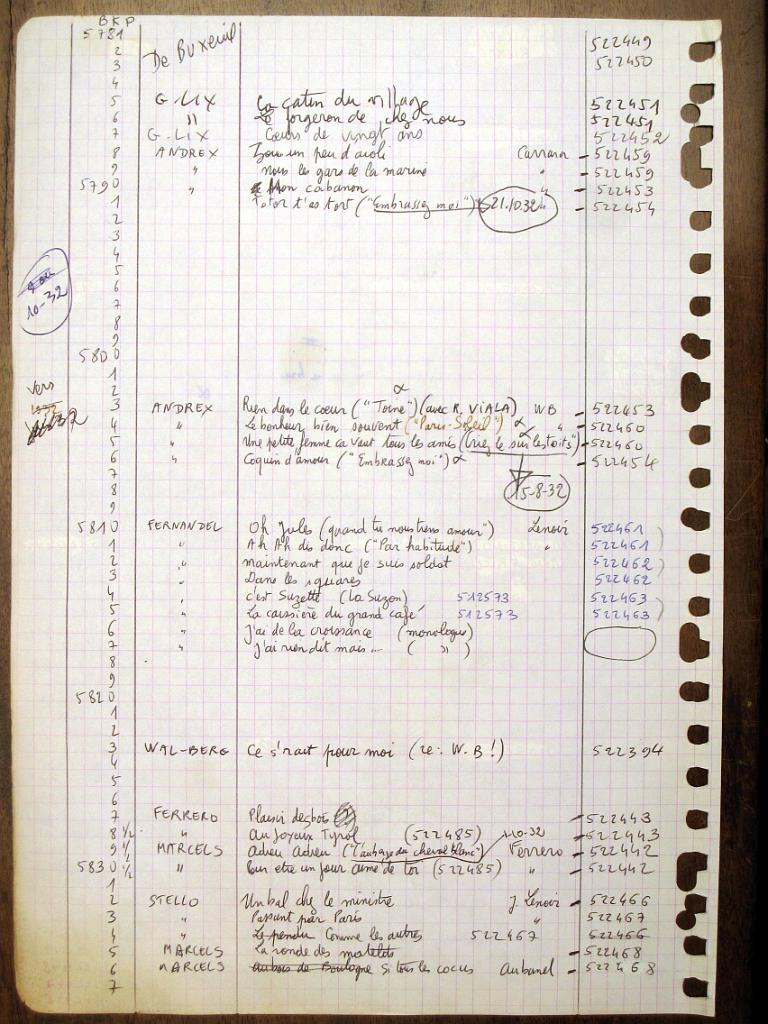 BKP
5781 De Buxeuil 522449
2 522450
3
4
5 G. LIX La catin du village 522451
6 " Le forgeron de chez nous 522451
7 G. LIX Coeurs de vingt ans 522452
8 ANDREX Zou un peu d'aioli Carrara - 522459
9 " nous les gars de la marine " - 522459
5790 " Mon cabanon " - 522453
1 Totor t'as tort ("Embrassez moi") 21.10.32 " - 522454
2
3
4
5
6 10-32
7
8
9
5800
1
2 vers
3 ANDREX Rien dans le coeur ("Toine") (avec R. VIALA) WB - 522453
4 " Le bonheur bien souvent ("Paris-Soleil") α " - 522460
5 " Une petite femme ca vaut tous les amis ( sur les toits") - 522460
6 " Coquin d'amour ("Embrassez moi") α - 522454
7
8 15-8-32
9
5810 FERNANDEL Oh Jules (quand tu nous tiens amour") Lenoir 522461
1 " Ah Ah dis donc ("Par habitude") " 522461
2 " maintenant que je suis soldat 522462
3 " Dans les squares 522462
4 " c'est Suzette (La Suzon) 512573 522463
5 " La caissière du grand café 512573 522463
6 " J'ai de la croissance (monologue)
7 " J'ai rien dit mais... ( " )
8
9
5820
1
2
3 WAL-BERG Ce s'rait pour moi (re: W.B!) 522394
4
5
6
7 FERRERO Plaisir des bois - 522443
8 1/2 " Au Joyeux Tyrol (522485) 10-32 - 522443
9 1/2 MARCELS Adieu Adieu ("L'auberge du cheval blanc") Ferrero - 522442
5830 1/2 " Pour etre un jour aimé de toi (522485) " - 522442
1
2 STELLO Un bal chez le ministre J Lenoir - 522466
3 " Passant par Paris " - 522467
4 " Le pendu Comme les autres 522467 522466
5 MARCELS La ronde des matelots - 522468
6 MARCELS au bois de Boulogne Si tous les cocus Aubanel - 522468
7